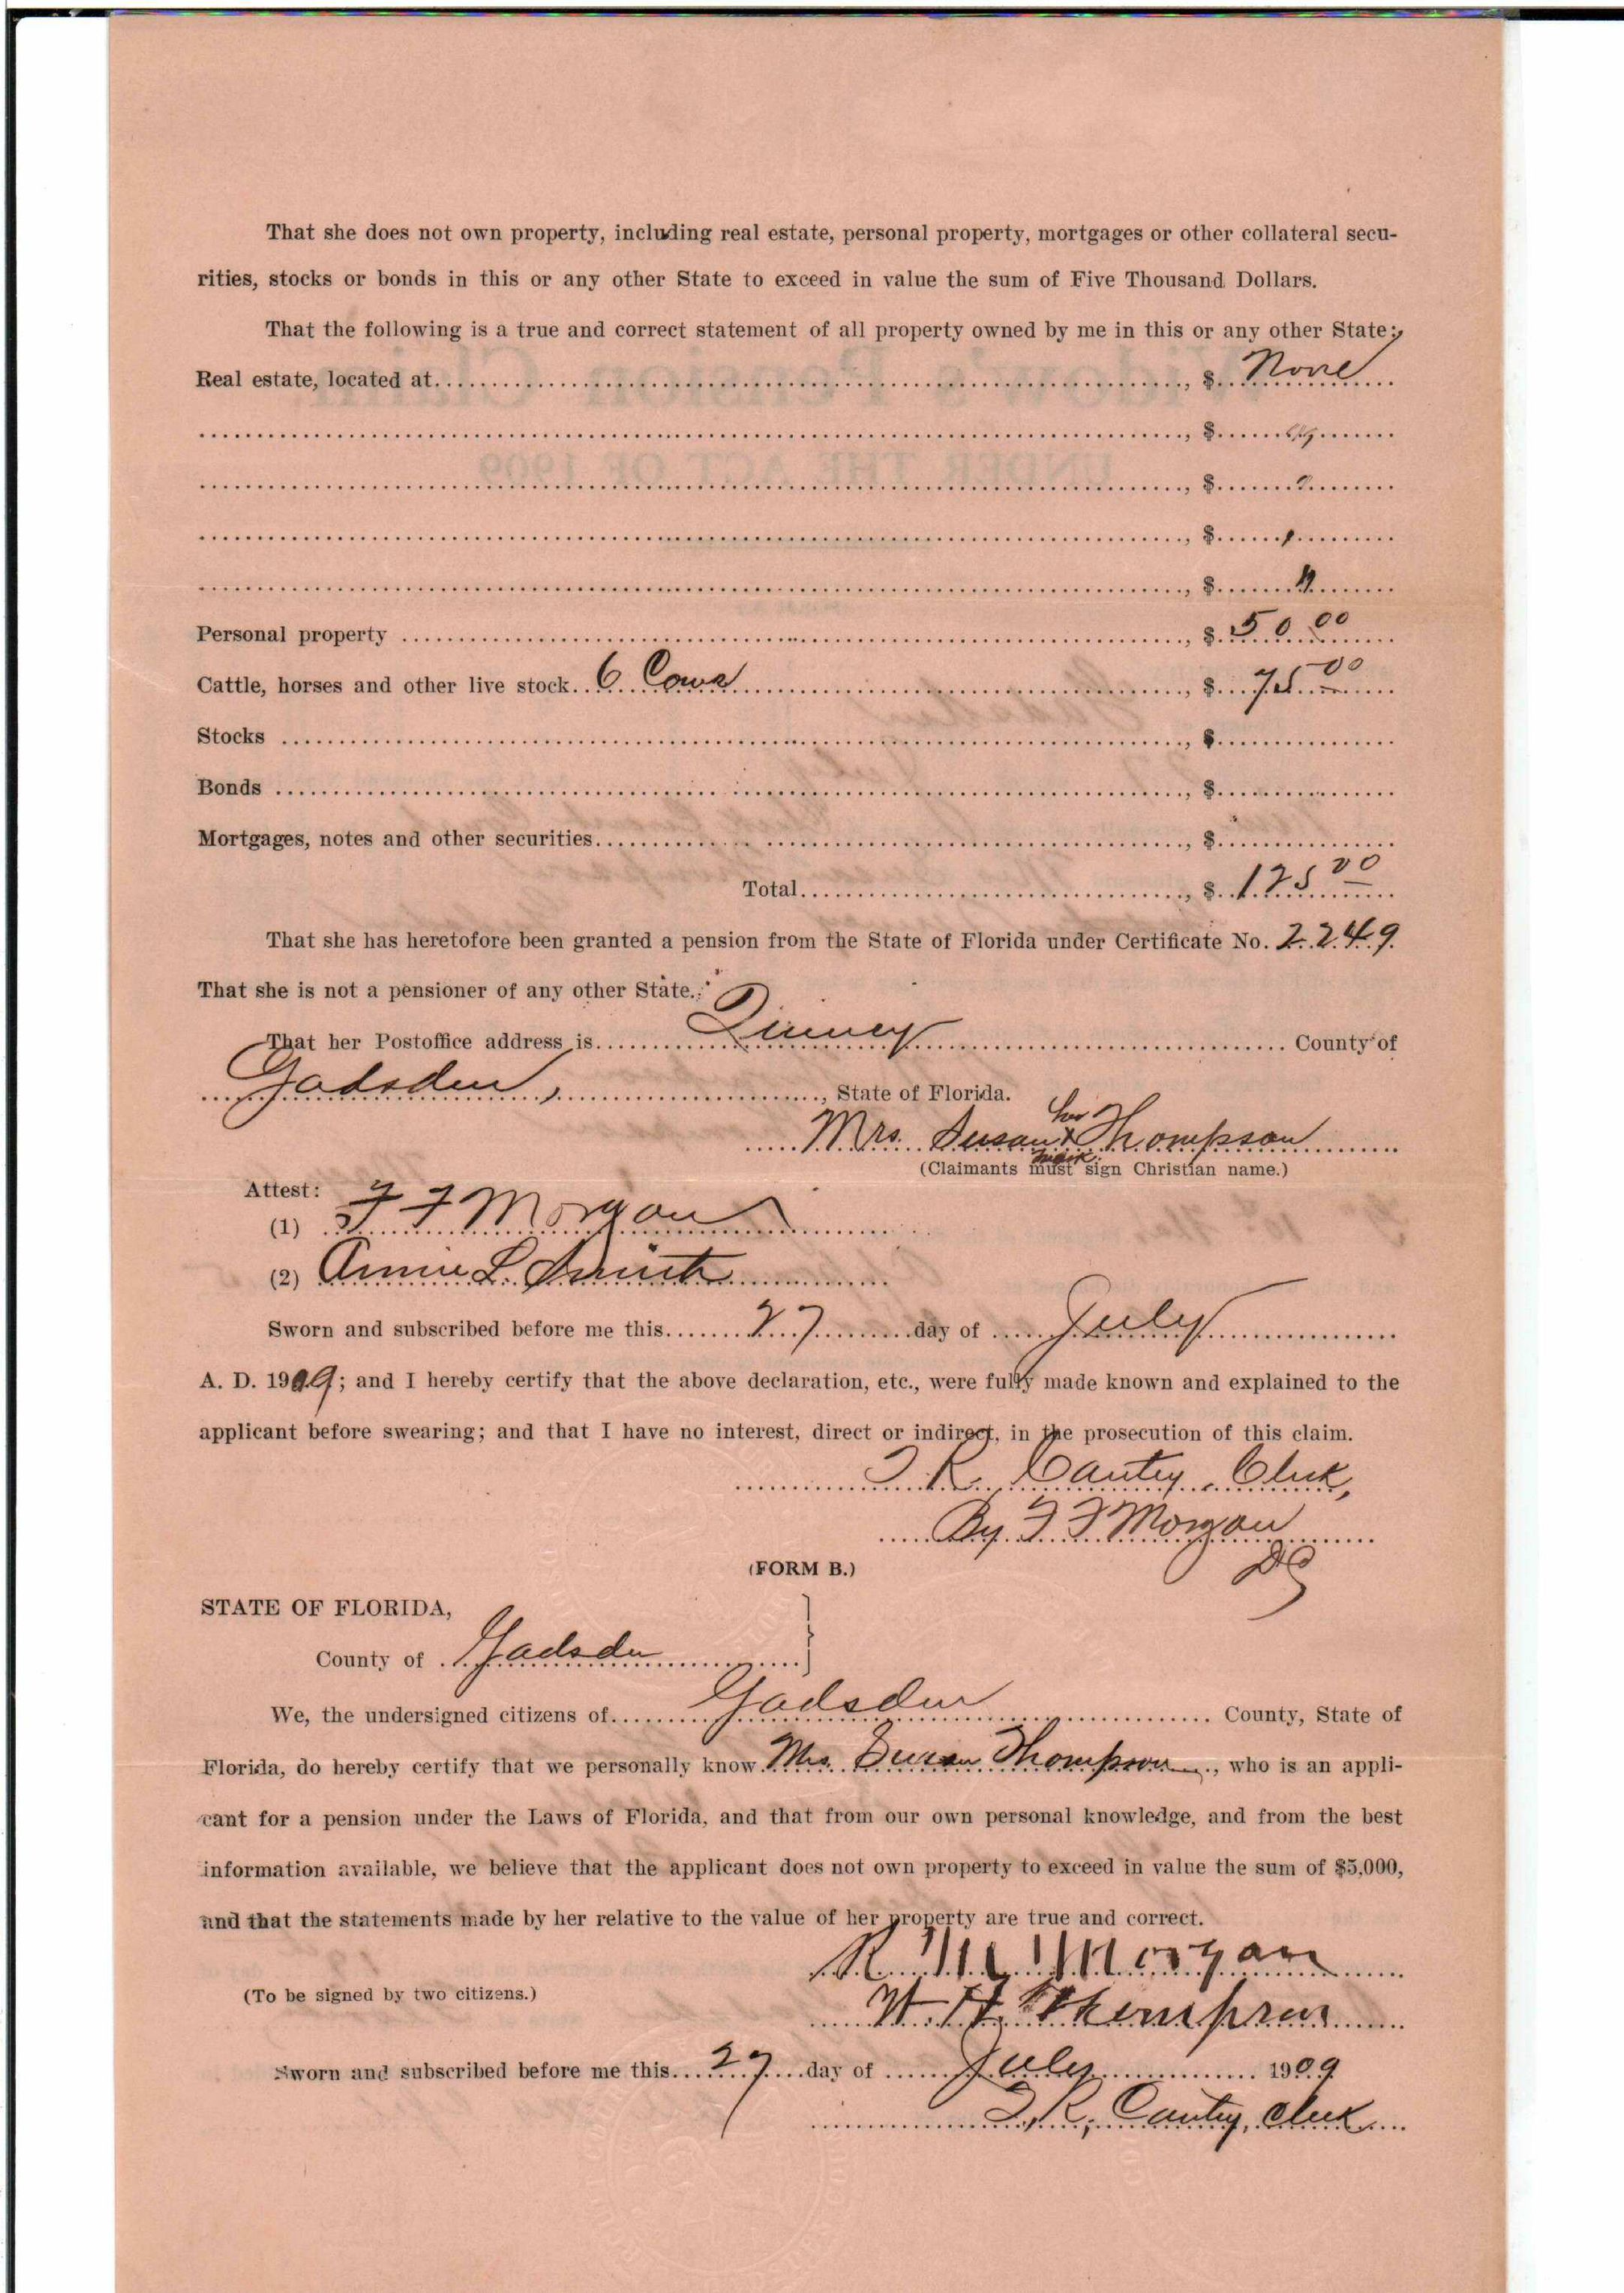 That she does not own property, including real estate, personal property, mortgages or other collateral secu-
rities, stocks or bonds in this or any other State to exceed in value the sum of Five Thousand Dollars.
That the following is a true and correct statement of all property owned by me in this or any other State:
Real estate, located at, $ None
, $
, $
, $
, $ "
Personal property, $ 50 00
Cattle, horses and other live stock. 6 Cows, $ 75 00
Stocks, $
Bonds, $
Mortgages, notes and other securities, $
Total, $ 125 00
That she has heretofore been granted a pension from the State of Florida under Certificate No. 2249
That she is not a pensioner of any other State.
That her Postoffice address is Quincy County of
Gadsden, State of Florida.
her
Mrs. Susan x Thompson
mark
(Claimants must sign Christian name.)
Attest:
(1) F F Morgan
(2) Annie L. Smith
Sworn and subscribed before me this 27 day of July
A. D. 1909; and I hereby certify that the above declaration, etc., were fully made known and explained to the
applicant before swearing; and that I have no interest, direct or indirect, in the prosecution of this claim.
R. Cantey, Clerk,
By F F Morgan
DC
(FORM B.)
STATE OF FLORIDA,
County of Gadsden
We, the undersigned citizens of Gadsden County, State of
Florida, do hereby certify that we personally know Mrs. Susan Thompson, who is an appli-
cant for a pension under the Laws of Florida, and that from our own personal knowledge, and from the best
information available, we believe that the applicant does not own property to exceed in value the sum of $5,000,
and that the statements made by her relative to the value of her property are true and correct.
R. Morgan
(To be signed by two citizens.)
W. H. Thompson
Sworn and subscribed before me this 27 day of July 1909
R. Cantey, Clerk